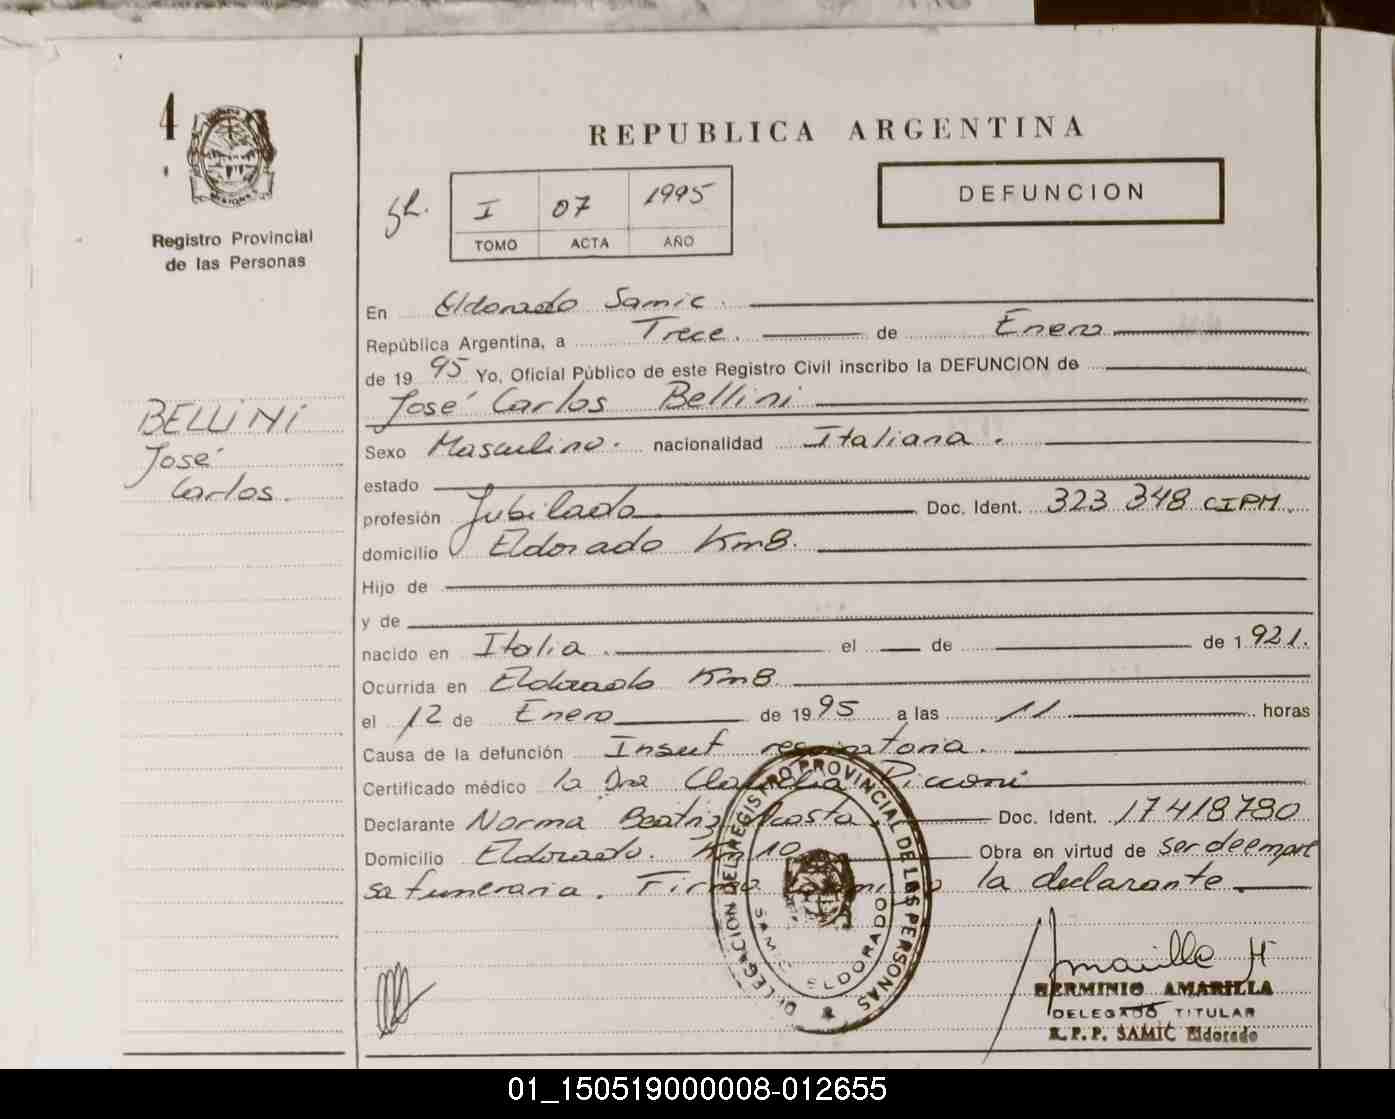 4
REPUBLICA ARGENTINA
I 07 1995
TOMO ACTA AÑO
DEFUNCION
Registro Provincial
de las Personas
BELLINI
José
Carlos.
En Eldorado Samic.
República Argentina, a Trece. de Enero
de 1995 Yo, Oficial Público de este Registro Civil inscribo la DEFUNCION de
José Carlos Bellini
Sexo Masculino. nacionalidad Italiana.
estado
profesión Jubilado. Doc. Ident. 323 348 CIPM.
domicilio Eldorado Km8.
Hijo de
y de
nacido en Italia. el de de 1921.
Ocurrida en Eldorado Km8
el 12 de Enero de 1995 a las 11 horas
Causa de la defunción Insuf respiratoria.
Certificado médico la Dra Picconi
Declarante Norma Beatriz Acosta, Doc. Ident. 17418780
Domicilio Eldorado. Km 10 Obra en virtud de ser de empre
sa funeraria. Firma conmigo la declarante.
DELEGACION DEL REGISTRO PROVINCIAL DE LAS PERSONAS
SAMIC ELDORADO
Amarilla H
HERMINIO AMARILLA
DELEGADO TITULAR
R.P.P. SAMIC Eldorado
01_150519000008-012655